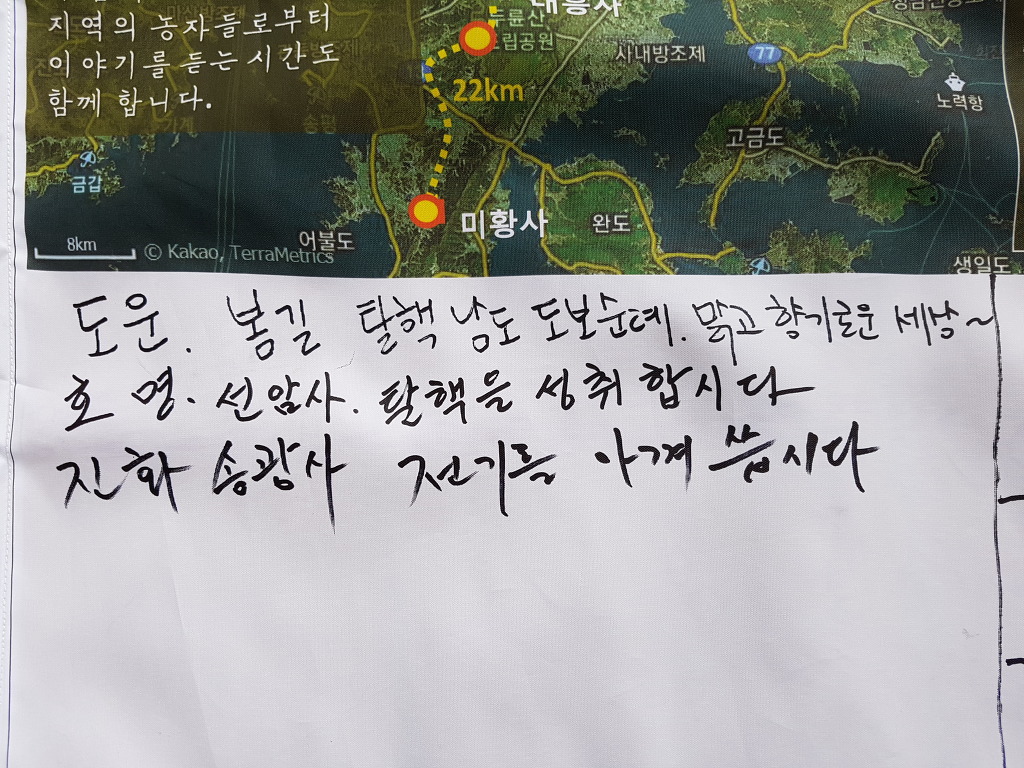 지역의 농자들로부터
이야기를 듣는 시간도
함께 합니다.
두륜산
대흥사
사내방조제
77
22km
노력항
고금도
금갑
미황사
완도
어불도
8km
© Kakao, TerraMetrics
생일도
도운. 봉길 탈핵 남도 도보순례. 맑고 향기로운 세상~
호명. 선암사. 탈핵을 성취합시다
진화 송광사 전기를 아껴 씁시다